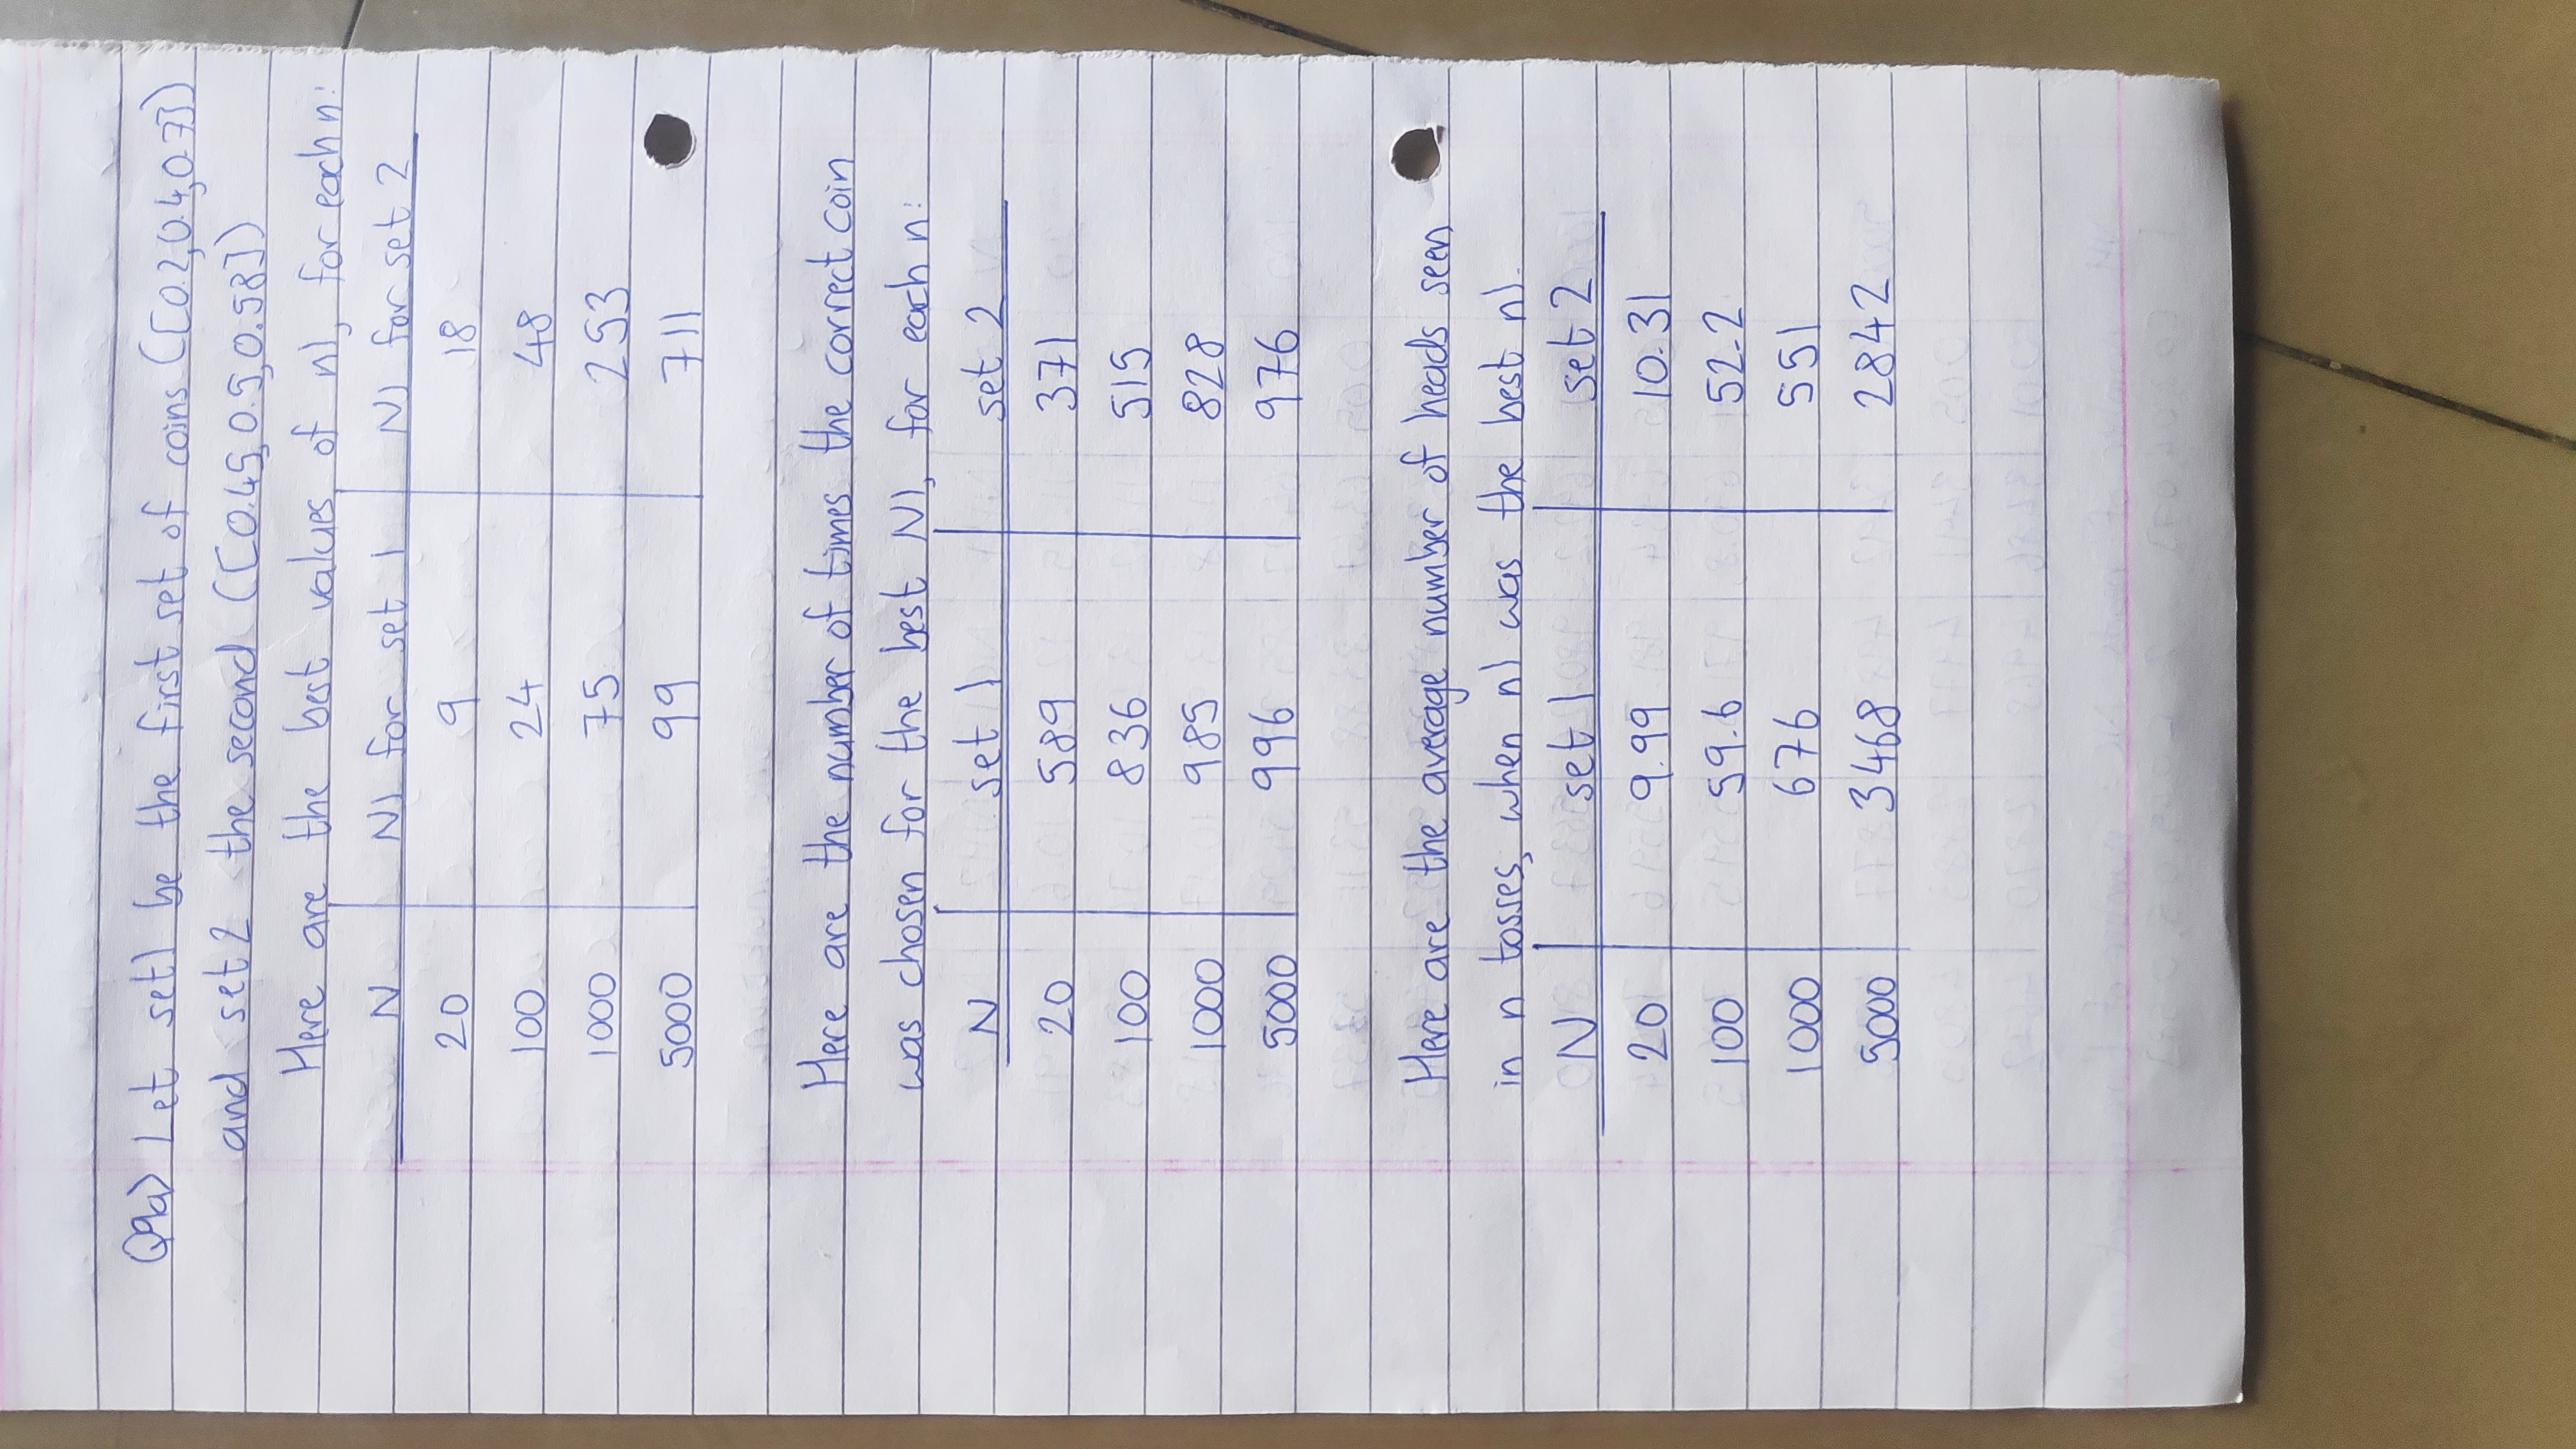 Q9a) Let set1 be the first set of coins ([0.2,0.4,0.7])
and set 2 the second ([0.45,0.5,0.58])
Here are the best values of n1, for each n:
N N1 for set 1 N1 for set 2
20 9 18
100 24 48
1000 75 253
5000 99 711
Here are the number of times the correct coin
was chosen for the best N1, for each n:
N set 1 set 2
20 589 371
100 836 515
1000 985 828
5000 996 976
Here are the average number of heads seen
in n tosses, when n1 was the best n1.
N set 1 set 2
20 9.99 10.31
100 59.6 52.2
1000 676 551
5000 3468 2842